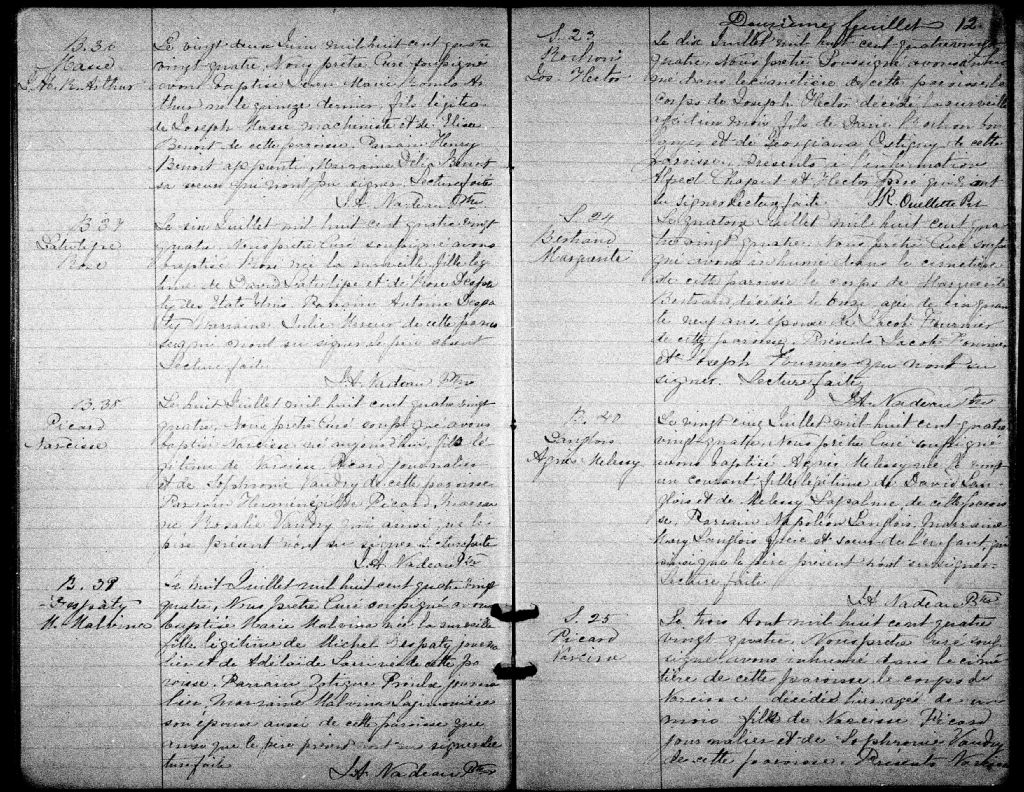 B. 36
Massé
J. H. R. Arthur
Le vingt deux Juin mil huit cent quatre
vingt quatre, Nous prêtre Curé soussigné
avons baptisé Marie Roméo Ar
thur né le quinze dernier, fils légiti
de Joseph Massé machiniste et de Elisa
Benoit de cette paroisse Parrain Henry
Benoit apprenti, Marraine Délia Benoit
sa soeur qui n'ont su signer. Lecture faite
J. A. Nadeau Ptre
B. 37
Latulipe
Rose
Le six Juillet mil huit cent quatre vingt
quatre. Nous prêtre Curé soussigné avons
baptisé Rose née la surveille, fille légi
time de David Latulipe et de Rose Despa
ty des Etats Unis Parrain Antoine Despa
ty Marraine Julie Mercur de cette parois
se qui n'ont su signer le père absent
Lecture faite
J. A. Nadeau Ptre
B. 38
Picard
Narcisse
Le huit Juillet mil huit cent quatre vingt
quatre, Nous prêtre Curé soussigné avons
baptisé Narcisse né aujourd'hui, fils lé
gitime de Narcisse Picard journalier
et de Sophronie Vaudry de cette paroisse
Parrain Herménégilde Picard, Marrai
ne Rosalie Vaudry qui ainsi que le
père présent n'ont su signer Lecture faite
J. A. Nadeau Ptre
B. 39
Despaty
M. Malvina
Le huit Juillet mil huit cent quatre vingt
quatre, Nous prêtre Curé soussigné avons
baptisé Marie Malvina née la surveille
fille légitime de Michel Despaty journa
lier et de Adélaide de cette pa
roisse. Parrain Zotique Proulx journa
lier, Marraine Malvina
son épouse aussi de cette paroisse qui
ainsi que le père présent n'ont su signer Lec
ture faite
J. A. Nadeau Ptre
Douzième feuillet 12
S. 23
Rochon
Jos. Hector
Le dix Juillet mil huit cent quatre vingt
quatre Nous prêtre soussigné avons inhu
mé dans le cimetière de cette paroisse le
corps de Joseph Hector décédé la surveille
agé d'un mois fils de Rochon bou
langer et de Georgiana Ostigny de cette
paroisse. Présents à l'inhumation
Alfred Chaput et Hector qui n'ont
su signer Lecture faite. JR Ouellette Ptr
S. 24
Bertrand
Marguerite
Le quatorze Juillet mil huit cent qua
tre vingt quatre. Nous prêtre Curé soussi
gné avons inhumé dans le cimetière
de cette paroisse le corps de Marguerite
Bertrand décédée le onze agée de cinquan
te neuf ans épouse de Jacob Fournier
de cette paroisse. Présents Jacob Fournier
et Joseph Fournier qui n'ont su
signer. Lecture faite
J. A. Nadeau Ptre
B. 40
Langlois
Agnès Melessy
Le vingt cinq Juillet mil huit cent quatre
vingt quatre, Nous prêtre Curé soussigné
avons baptisé Agnès Melessy née le vingt
un courant, fille légitime de David Lan
glois et de Melessy Lapalme de cette parois
se. Parrain Napoléon Langlois, Marraine
Mary Langlois frère et soeur de l'enfant, qui
ainsi que le père présent n'ont su signer
Lecture faite
J. A. Nadeau Ptre
S. 25
Picard
Narcisse
Le trois Aout mil huit cent quatre
vingt quatre, Nous prêtre Curé sous
signé avons inhumé dans le cime
tière de cette paroisse le corps de
Narcisse décédé hier agé de un
mois fils de Narcisse Picard
journalier et de Sophronie Vaudry
de cette paroisse. Présents Narcisse